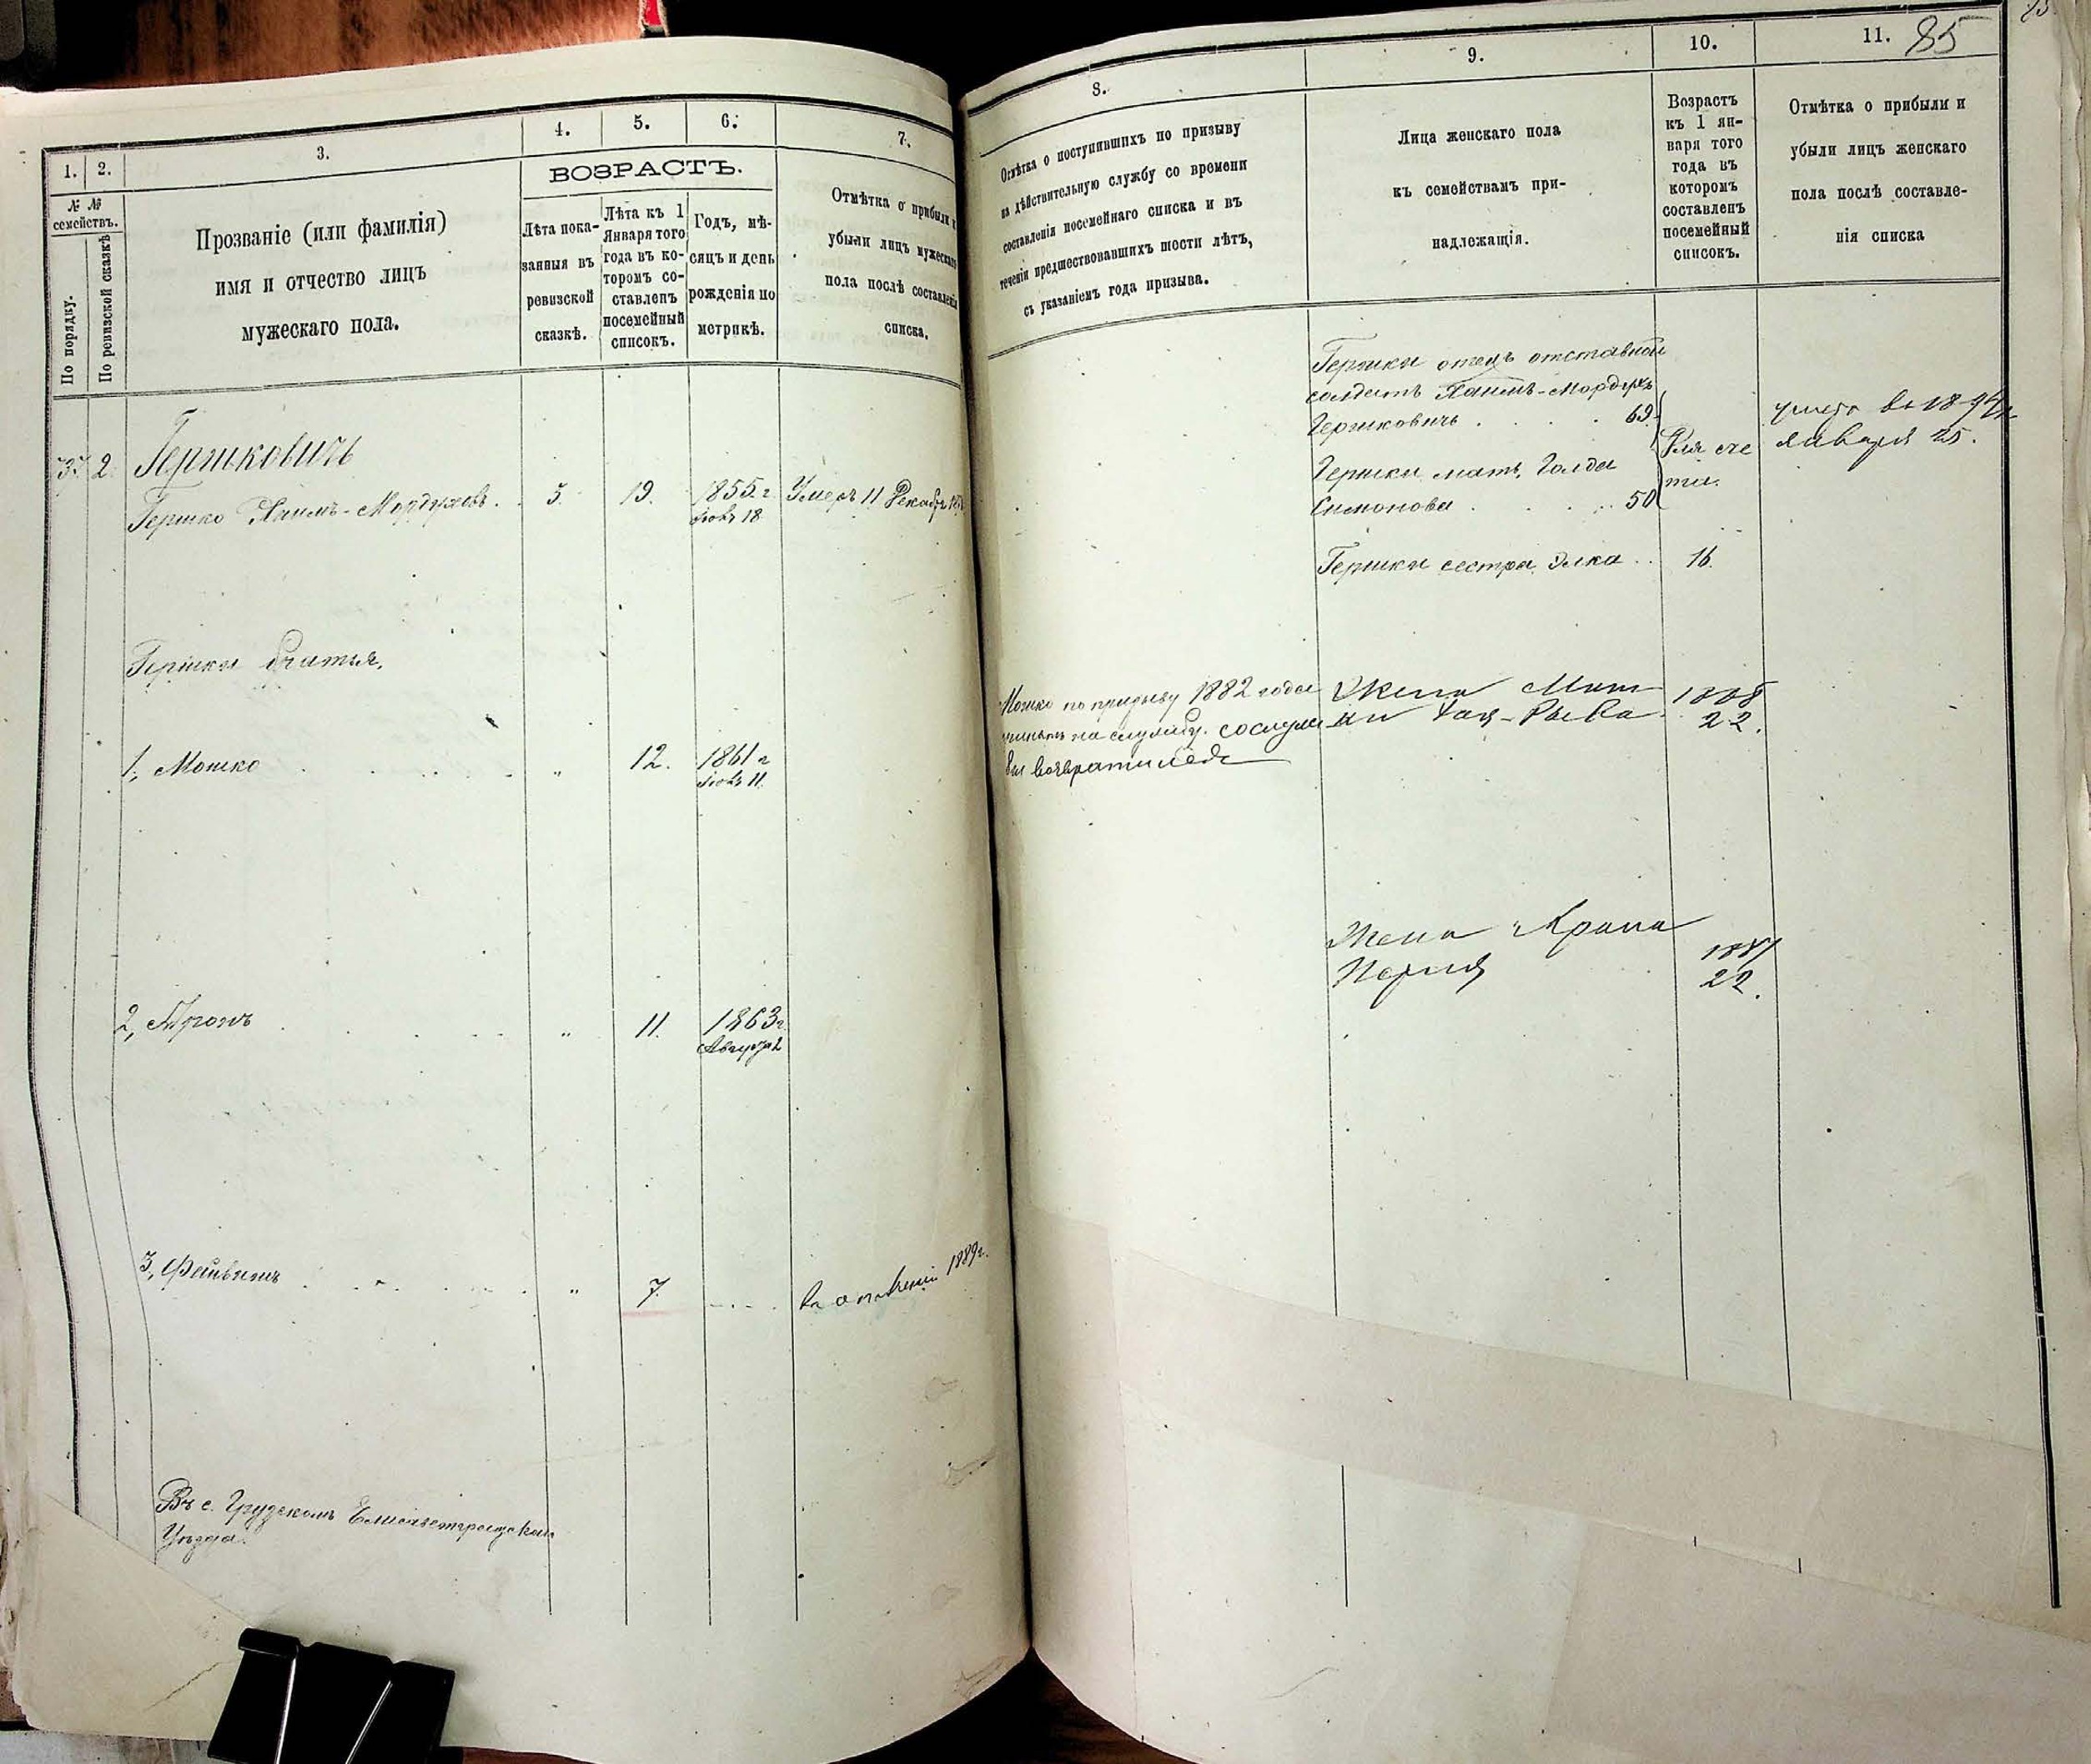 1.
2.
3.
4.
5.
6.
7.
№ №
семействъ.
По порядку.
По ревизской сказкѣ
Прозваніе (или фамилія)
имя и отчество лицъ
мужескаго пола.
ВОЗРАСТЪ.
Лѣта пока-
занныя въ
ревизской
сказкѣ.
Лѣта къ 1
Января того
года въ ко-
торомъ со-
ставленъ
посемейный
списокъ.
Годъ, мѣ-
сяцъ и день
рожденія по
метрикѣ.
Отмѣтка о прибыли и
убыли лицъ мужескаго
пола послѣ составленія
списка.
37. 2. Гершковичъ
Гершко Хаимъ-Мордуховъ. 5. 19. 1855 г. Умеръ 11 Декабр
18
Гершки братья.
1, Мошко " 12. 1861 г.
11.
2, Аронъ " 11. 1863 г.
Августа 2
3, Файвишъ " 7. 1889 г.
Въ с. Грузскомъ Елисаветградскаго
Уѣзда.
8.
9.
10.
11. 85
Отмѣтка о поступившихъ по призыву
на дѣйствительную службу со времени
составленія посемейнаго списка и въ
теченіи предшествовавшихъ шести лѣтъ,
съ указаніемъ года призыва.
Лица женскаго пола
къ семействамъ при-
надлежащія.
Возрастъ
къ 1 ян-
варя того
года въ
которомъ
составленъ
посемейный
списокъ.
Отмѣтка о прибыли и
убыли лицъ женскаго
пола послѣ составле-
нія списка
Гершки отецъ отставной
солдатъ Хаимъ-Мордухъ
Гершковичъ 69.
умеръ въ 1894 г.
Января 25.
Гершки мать Голда
Симонова 50
Для сче
та.
Гершки сестра Элка 16.
Мошко по призыву 1882 года
принятъ на службу.
возвратился
Жена Мош
ки Хая-Рывка 1888
22.
Жена Арона
Перля 1887
22.